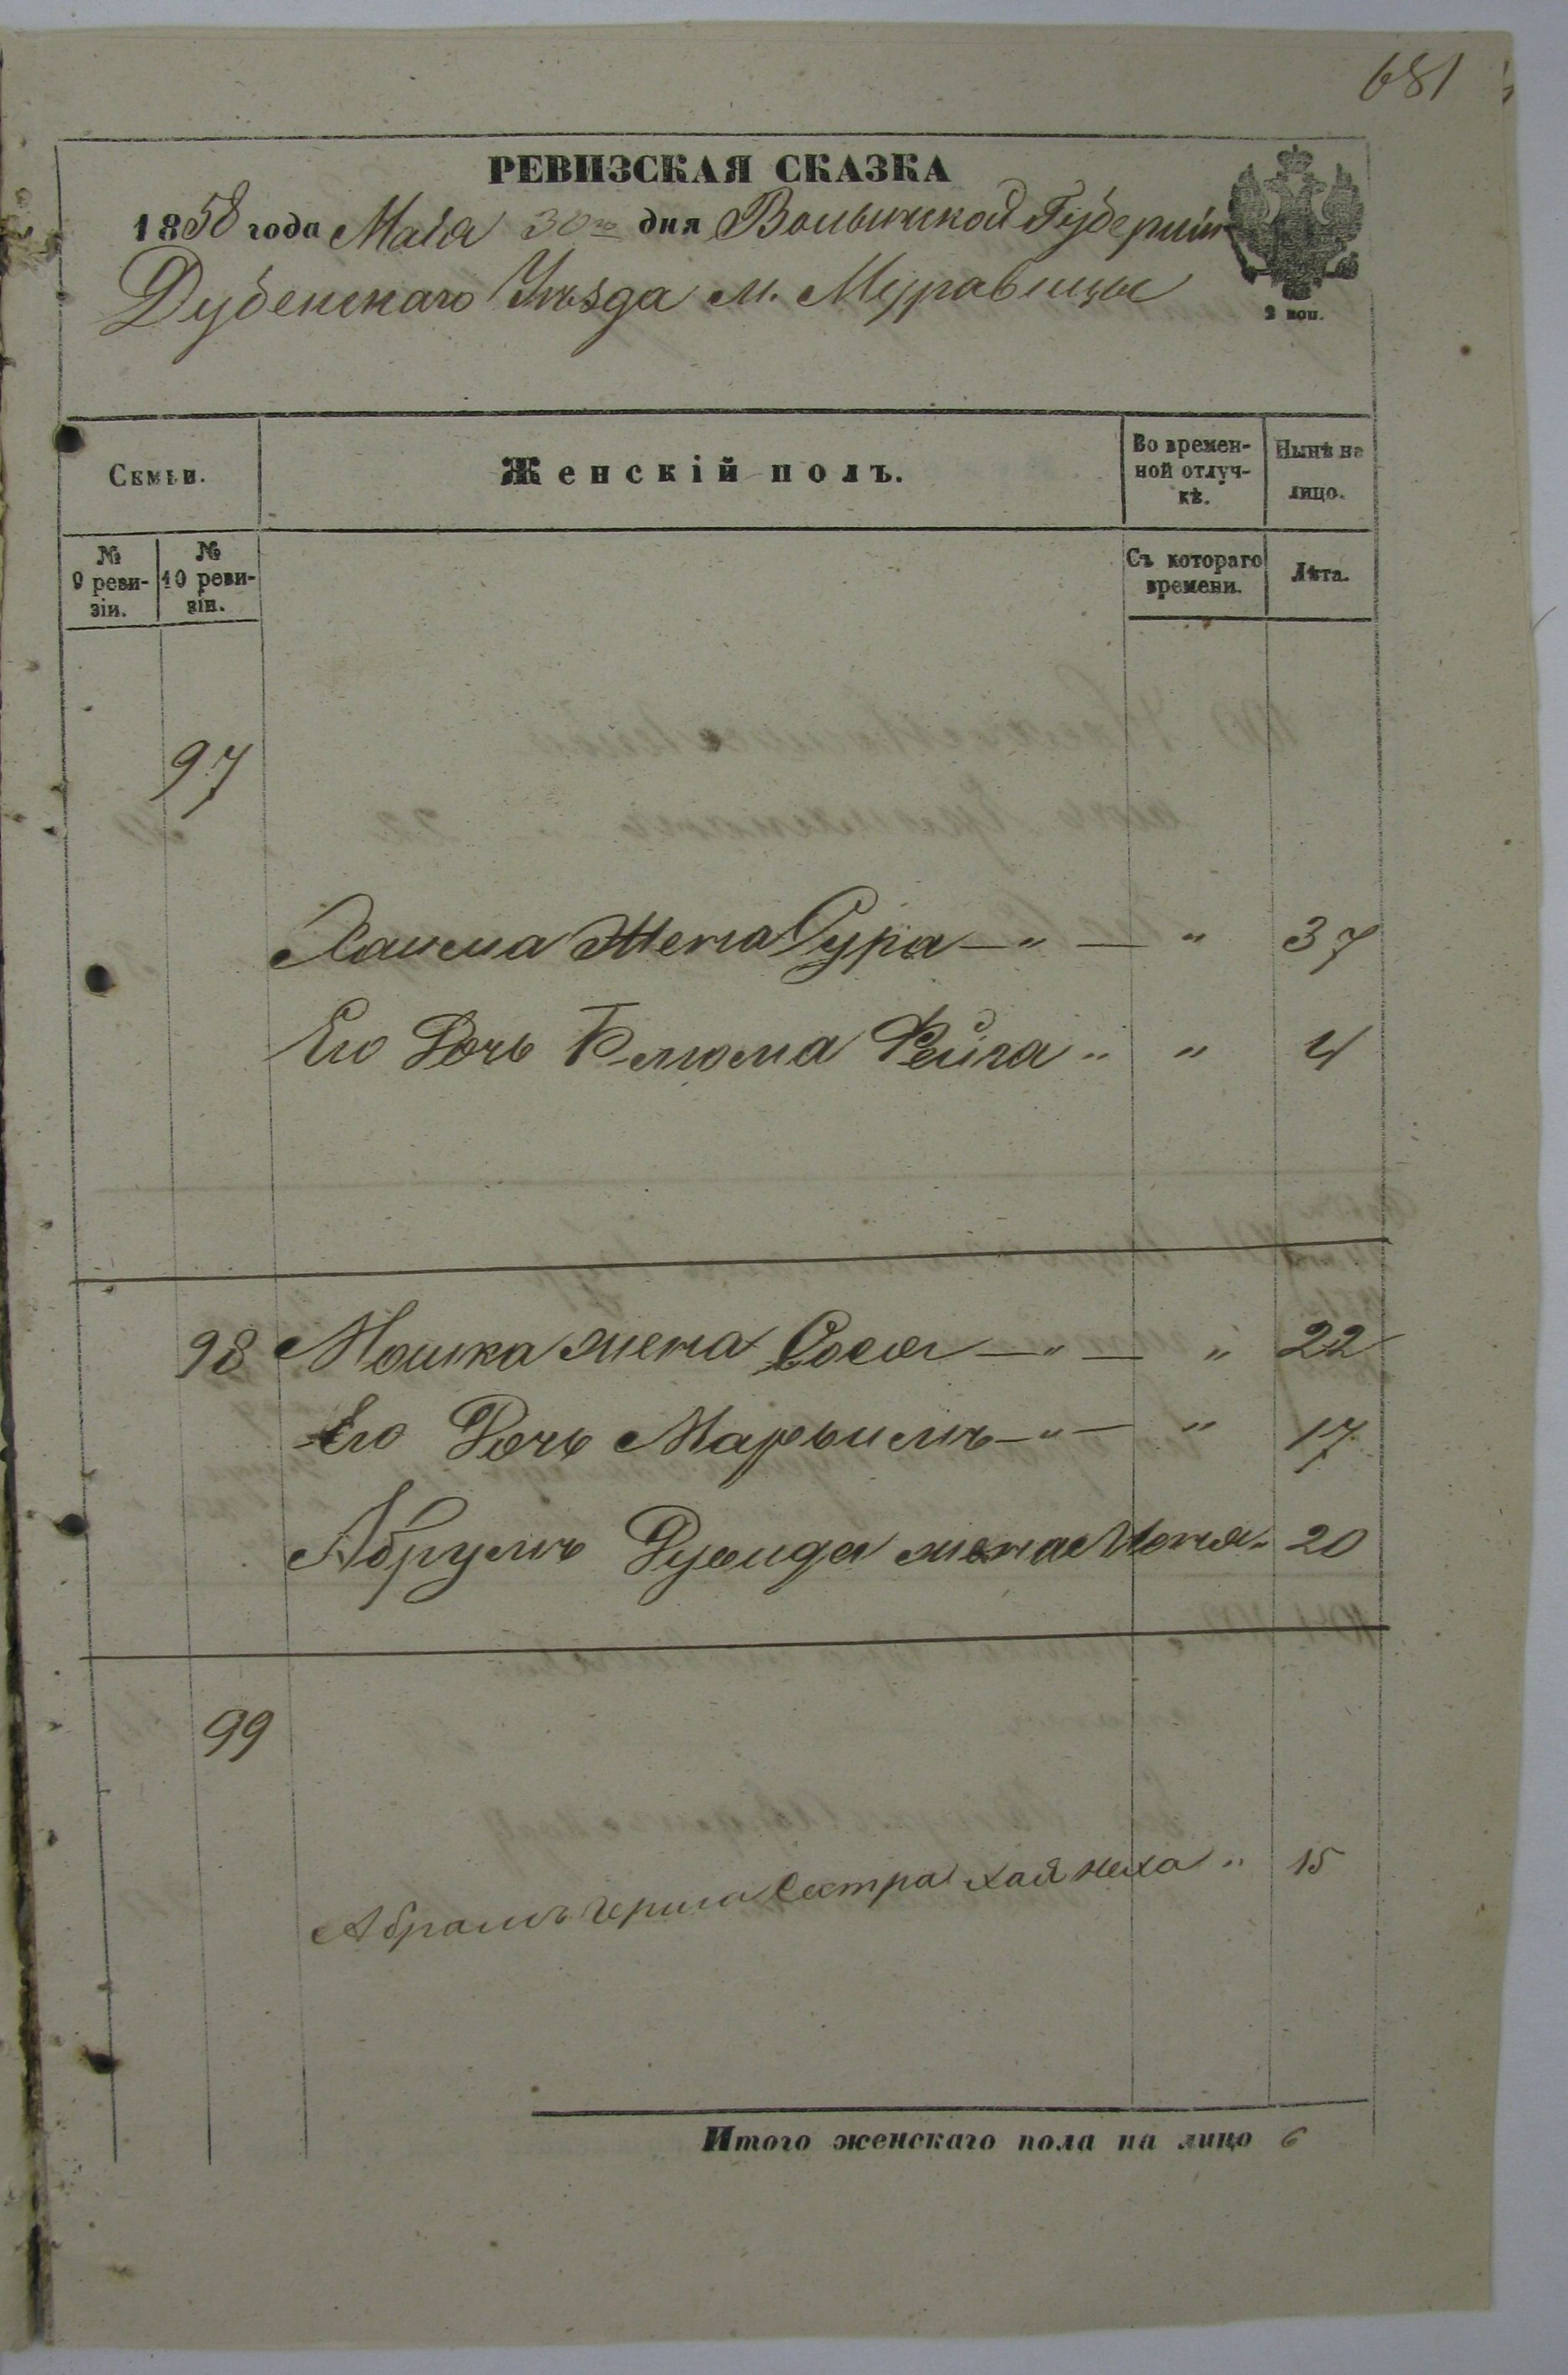 681
РЕВИЗСКАЯ СКАЗКА
1858 года Маія 30го дня Волынской Губерніи
Дубенскаго Уѣзда м. Муравицы
2 коп.
Семьи.
Женскій полъ.
Во времен-
ной отлуч-
кѣ.
Нынѣ на
лицо.
№
9 реви-
зіи.
№
10 реви-
зіи.
Съ котораго
времени.
Лѣта.
97
Хаима Жена Сура — " — " 37
Его Дочь Блюма Фейга " " 4
98 Мошка жена Сося — " — " 22
Его Дочь Марьимъ — " — " 17
Абрумъ Дувида жена Меня " 20
99
Абрамъ Герша Сестра Хая Неха " 15
Итого женскаго пола на лицо 6